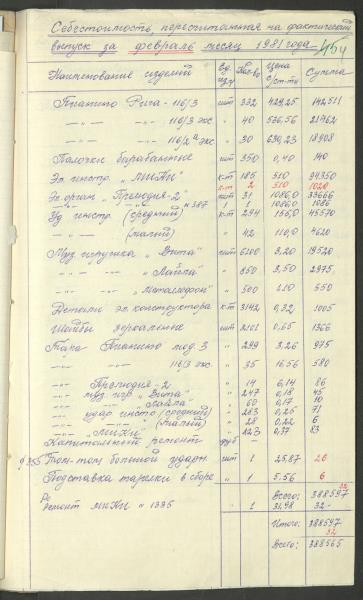 Себестоимость, пересчитанная на фактический
выпуск за февраль месяц 1981 года
Наименование изделий Ед. изм Кол-во Цена с/ст-ть Сумма
Пианино Рига - 116/3 шт 332 429,25 142511
—"— —"— 116/3 экс " 40 536,56 21462
—"— —"— 116/2 экс " 30 630,23 18908
Палочки барабанные шт 350 0,40 140
Эл. инстр. "МИКИ" к-т 185 510 94350
к-т 2 510 1020
Эл. орган "Прелюдия-2" шт 31 1086,0 33666
" 1 1086,0 1086
Уд. инстр. (средний) к-т 294 155,0 45570
—"— —"— (малый) " 42 110,0 4620
Муз. игрушка "Вита" шт 6100 3,20 19520
—"— —"— "Лайла" " 850 3,50 2975
—"— —"— "Металлофон" " 500 1.10 550
Детали эл. конструктора к-т 3142 0,32 1005
Шайбы зеркальные шт 2101 0,65 1366
Тара Пианино мод. 3 " 299 3,26 975
—"— —"— 116/3 экс. " 35 16,56 580
—"— Прелюдия-2 " 14 6,14 86
—"— муз. игр. "Вита" " 247 0,18 45
—"— —"— "Лайла" " 60 0,17 10
—"— удар. инстр. (средний) " 283 0,25 71
—"— —"— (малый) " 28 0,22 6
—"— "МИКИ" " 223 0,37 83
Капитальный ремонт руб —
Том-том большой ударн. шт 1 25,87 26
Подставка тарелки в сборе " 1 5.56 6
32
Всего: 388597
Ремонт МИКИ " 1395 " 1 31,98 32-
Итого: 388597
32
Всего: 388565